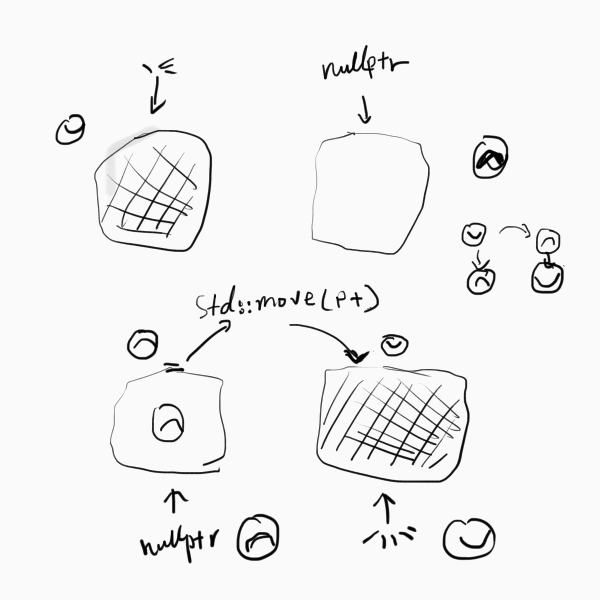 nullptr
std::move(pt)
nullptr